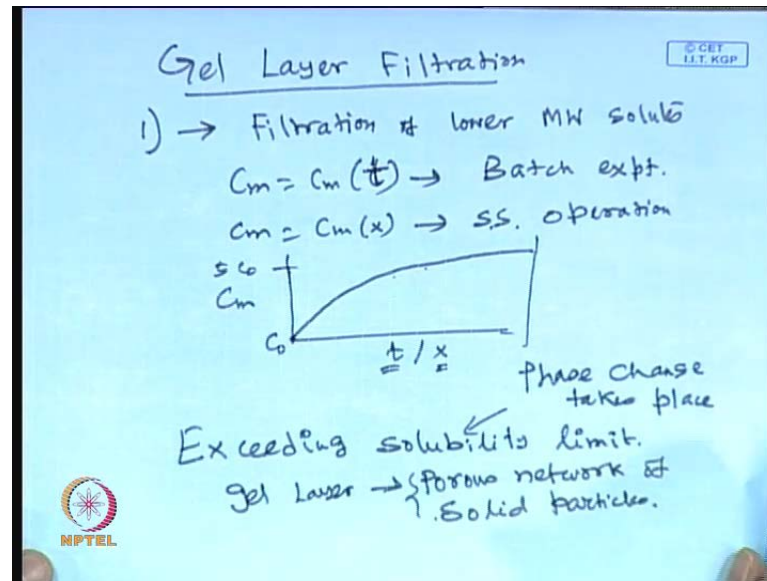 Gel Layer Filtration
© CET
I.I.T. KGP
1) → Filtration of lower MW solute
Cm = Cm (t) → Batch expt.
Cm = Cm (x) → S.S. operation
5 Co
Cm
Co
t / x
Phase change
takes place
Exceeding solubility limit.
gel Layer → { Porous network of
Solid particles.
NPTEL